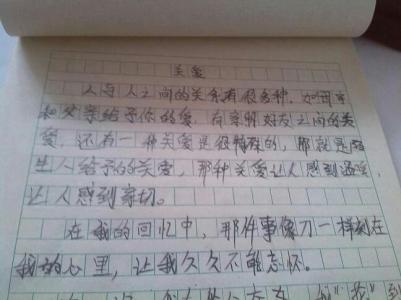 关爱
人与人之间的关系有很多种，如同母
和父亲给予你的爱，有亲朋好友之间的关
爱，还有一种关爱是很特殊的，那就是陌
生人给予的关爱，那种关爱让人感到温暖，
让人感到亲切。
在我的回忆中，那件事像刀一样刻在
我的心里，让我久久不能忘怀。